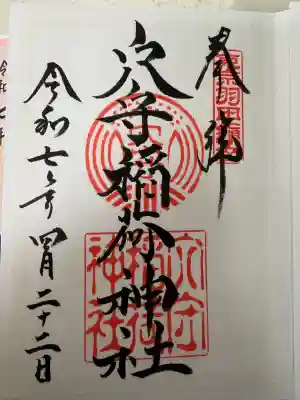 奉拝
東京羽田鎮座
穴守稲荷神社
穴守稲荷神社
令和七年四月二十二日
令和七年